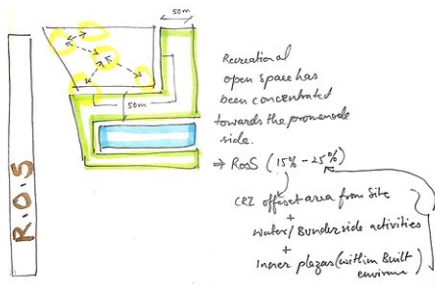 50m
50m
R.O.S
Recreational
open space has
been concentrated
towards the promenade
side.
⇒ RosS (15% - 25%)
CRZ offset area from Site
+
Water/Bunderside activities
+
Inner plazas (within Built
environ)